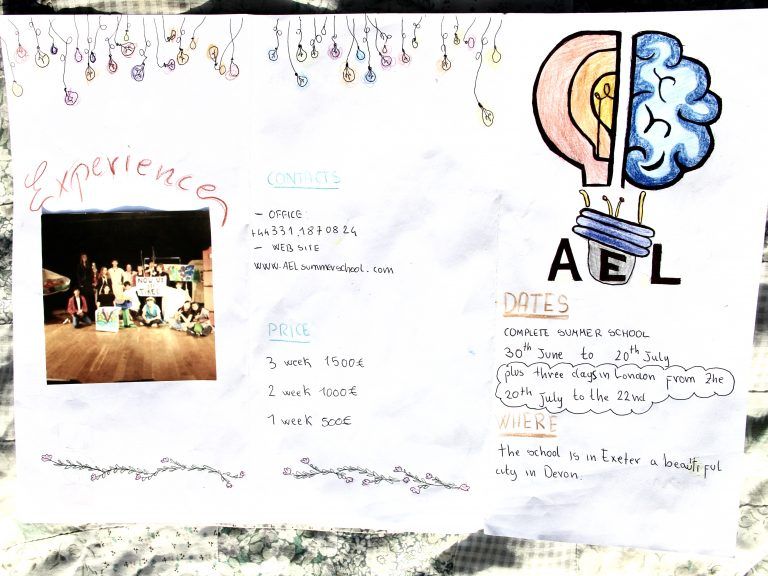 Experience
CONTACTS
- OFFICE
+44331.1870824
- WEB SITE
www.AELsummerschool.com
PRICE
3 week 1500€
2 week 1000€
1 week 500€
AEL
DATES
COMPLETE SUMMER SCHOOL
30th June to 20th July
plus three days in London from the
20th July to the 22nd
WHERE
the school is in Exeter a beautiful
city in Devon.